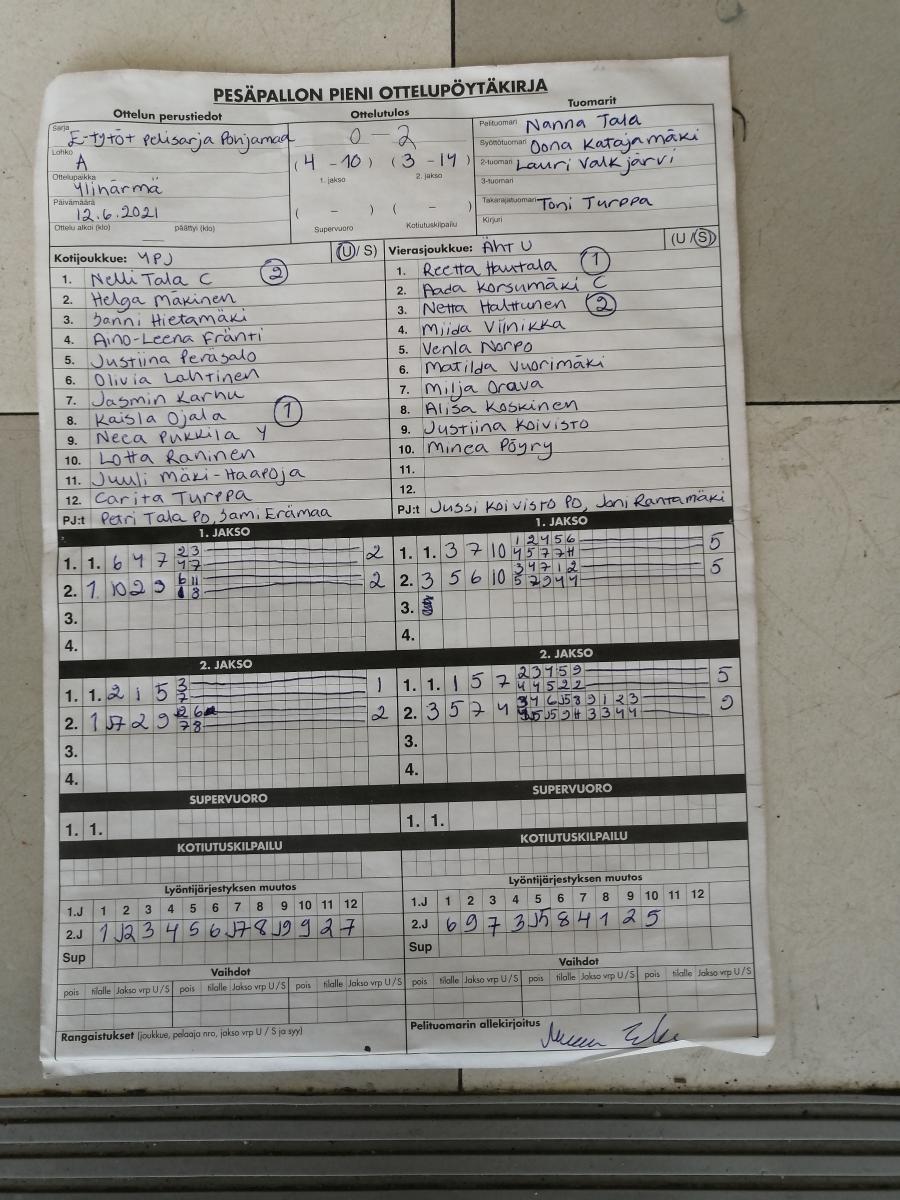 PESÄPALLON PIENI OTTELUPÖYTÄKIRJA
Ottelun perustiedot
Sarja E-tytöt pelisarja Pohjamaa
Lohko A
Ottelupaikka Ylihärmä
Päivämäärä 12.6.2021
Ottelu alkoi (klo) päättyi (klo)
Ottelutulos
0 - 2
(4 - 10) (3 - 14)
1. jakso 2. jakso
( - ) ( - )
Supervuoro Kotiutuskilpailu
Tuomarit
Pelituomari Nanna Tala
Syöttötuomari Oona Katajamäki
2-tuomari Lauri Valkjärvi
3-tuomari
Takarajatuomari Toni Turppa
Kirjuri
Kotijoukkue: YPJ (U / S)
1. Nelli Tala C 2
2. Helga Mäkinen
3. Sanni Hietamäki
4. Aino-Leena Fränti
5. Justiina Peräsalo
6. Olivia Lahtinen
7. Jasmin Karhu
8. Kaisla Ojala 1
9. Neea Pukkila Y
10. Lotta Raninen
11. Juuli Mäki-Haapoja
12. Carita Turppa
PJ:t Petri Tala PO, Sami Erämaa
Vierasjoukkue: ÄhtU (U / S)
1. Reetta Hautala 1
2. Aada Korsumäki C
3. Netta Halttunen 2
4. Miida Viinikka
5. Venla Norpo
6. Matilda Vuorimäki
7. Milja Orava
8. Alisa Koskinen
9. Justiina Koivisto
10. Minea Pöyry
11.
12.
PJ:t Jussi Koivisto PO, Joni Rantamäki
1. JAKSO
1. 1. 6 4 7 2
2. 1 10 2 9 2
3.
4.
1. JAKSO
1. 1. 3 7 10 5
2. 3 5 6 10 5
3.
4.
2. JAKSO
1. 1. 2 1 5 1
2. 2
3.
4.
2. JAKSO
1. 1. 1 5 7 5
2. 3 5 7 4 9
3.
4.
SUPERVUORO
1. 1.
SUPERVUORO
1. 1.
KOTIUTUSKILPAILU
KOTIUTUSKILPAILU
Lyöntijärjestyksen muutos
1.J 1 2 3 4 5 6 7 8 9 10 11 12
2.J 1 J2 3 4 5 6 J7 8 J9 9 2 7
Sup
Lyöntijärjestyksen muutos
1.J 1 2 3 4 5 6 7 8 9 10 11 12
2.J 6 9 7 3 J5 8 4 1 2 5
Sup
Vaihdot
pois tilalle Jakso vrp U / S pois tilalle Jakso vrp U / S pois tilalle Jakso vrp U / S
Vaihdot
pois tilalle Jakso vrp U / S pois tilalle Jakso vrp U / S pois tilalle Jakso vrp U / S
Rangaistukset (joukkue, pelaaja nro, jakso vrp U / S ja syy)
Pelituomarin allekirjoitus